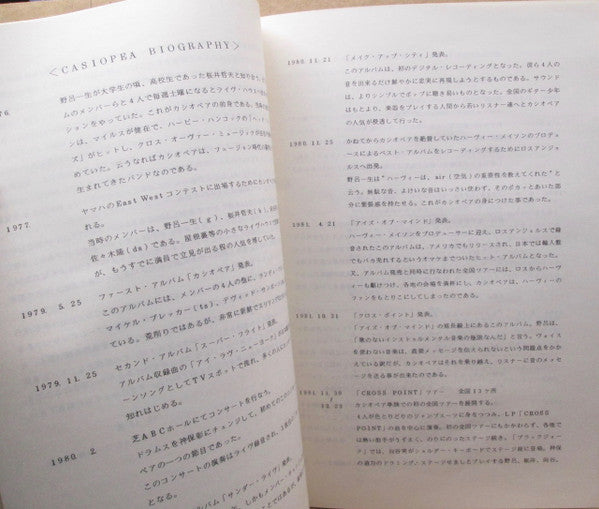 <CASIOPEA BIOGRAPHY>
野呂一生が大学生の頃、高校生であった桜井哲夫と知り合う。
ムのメンバーらと4人で毎週土曜になるとライヴ・ハウス
ションをやっていた。これがカシオペアの前身である。
ンは、マイルスが健在で、ハービー・ハンコックの「ヘッド
ズ」がヒットし、クロス・オーヴァー・ミュージックが
めていた。云うなればカシオペアは、フュージョン時代
生まれてきたバンドなのである。
1977.
ヤマハのEast Westコンテストに出場するために
れる。
当時のメンバーは、野呂一生(g)、桜井哲夫(b)
佐々木隆(ds)である。屋根裏等の小さなライヴハウス
が、もうすでに満員で立見が出る程の人気を博していた。
1979. 5.25
ファースト・アルバム「カシオペア」発表。
このアルバムには、メンバーの4人の他に、ランディ・
マイケル・ブレッカー(ts)、デヴィッド・サンボーン
ている。荒削りではあるが、非常に斬新でスリリング
1979.11.25
セカンド・アルバム「スーパー・フライト」発表。
アルバム収録曲の「アイ・ラヴ・ニューヨーク」
ーンソングとしてTVスポットで流れ、多くの人に
知れはじめる。
1980. 2
芝ABCホールにてコンサートを行なう。
ドラムスを神保彰にチェンジして、初めての
ペアの一つの節目であった。
このコンサートの演奏はライヴ録音され、
となる。
アルバム「サンダー・ライヴ」発表。
1980.11.21
「メイク・アップ・シティ」発表。
このアルバムは、初のデジタル・レコーディングとなった。彼ら4人の
音を出来るだけ鮮やかに忠実に再現しようとするものである。サウンド
は、よりシンプルでポップに磨き良いものとなった。全国のギター少年
はもとより、楽器をプレイする人間から若いリスナー達へとカシオペア
の人気が浸透して行った。
1980.11.25
かねてからカシオペアを絶賛していたハーヴィー・メイソンのプロデュ
ースによるベスト・アルバムをレコーディングするためにロスアンジェ
ルスへ出発。
野呂一生は"ハーヴィーは、air(空気)の重要性を教えてくれた"と
云う。無駄な音、よけいな音はいっさい使わず、そのポカっとあいた部分
に緊張感を持たせる。これがカシオペアの身につけた事であった。
1981. 4.21
「アイズ・オブ・マインド」発表。
ハーヴィー・メイソンをプロデューサーに迎え、ロスアンジェルスで録
音されたこのアルバムは、アメリカでもリリースされ、日本では輸入盤
でもバカ売れするというオマケまでついたヒット・アルバムとなった。
又、アルバム発売と同時に行なわれた全国ツアーには、ロスからハーヴィ
ーも駆けつけ、各地の会場を満杯にし、カシオペアは、ハーヴィーの
ファンをもとりこにしてしまったのである。
1981.10.21
「クロス・ポイント」発表。
「アイズ・オブ・マインド」の延長線上にあるこのアルバム。野呂は、
「歌のないインストゥルメンタル音楽の極致なんだ」と言う。ヴォイス
を使わない音楽は、直接メッセージを伝えられないという問題点をかか
えている訳だが、カシオペアはそれを乗り越し、リスナーに音のメッセ
ージを送る事が出来たのである。
「CROSS POINT」ツアー 全国13ヶ所
カシオペア単独での初の全国ツアーを展開する。
4人がたとりどりのジャンプスーツに身をつつみ、LP「CROSS
POINT」の曲を中心に演奏。初の全国ツアーにもかかわらず、各地で
は熱い拍手がうずまく、のりにのったステージ続き。「ブラックジョー
ク」では、向谷実がショルダー・キーボードでステージ前に登場。神保